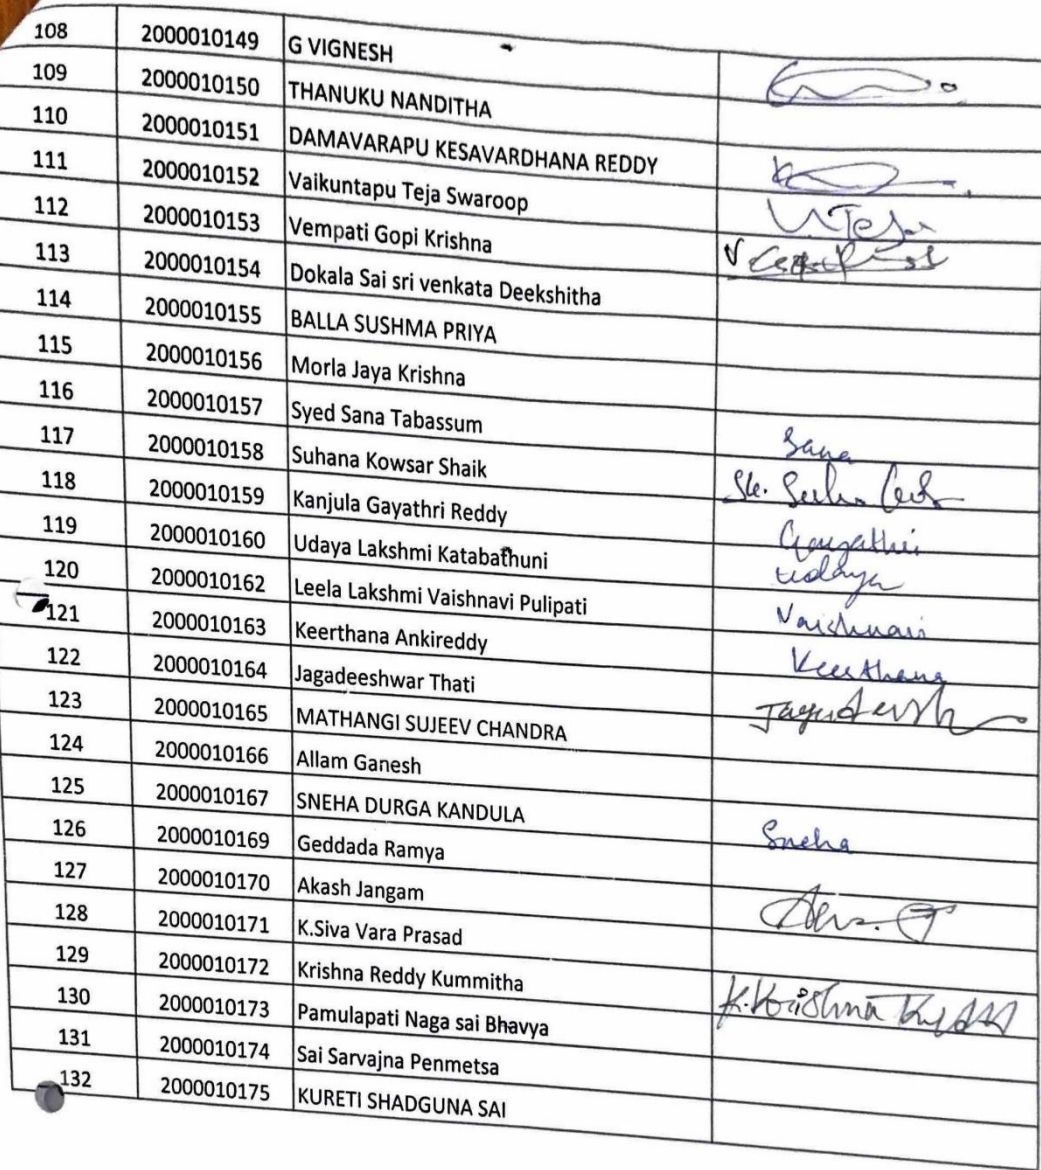 108 2000010149 G VIGNESH
109 2000010150 THANUKU NANDITHA
110 2000010151 DAMAVARAPU KESAVARDHANA REDDY
111 2000010152 Vaikuntapu Teja Swaroop
112 2000010153 Vempati Gopi Krishna
113 2000010154 Dokala Sai sri venkata Deekshitha
114 2000010155 BALLA SUSHMA PRIYA
115 2000010156 Morla Jaya Krishna
116 2000010157 Syed Sana Tabassum Sana
117 2000010158 Suhana Kowsar Shaik
118 2000010159 Kanjula Gayathri Reddy Gayathri
119 2000010160 Udaya Lakshmi Katabathuni udaya
120 2000010162 Leela Lakshmi Vaishnavi Pulipati Vaishnavi
121 2000010163 Keerthana Ankireddy Keerthana
122 2000010164 Jagadeeshwar Thati
123 2000010165 MATHANGI SUJEEV CHANDRA
124 2000010166 Allam Ganesh
125 2000010167 SNEHA DURGA KANDULA Sneha
126 2000010169 Geddada Ramya
127 2000010170 Akash Jangam
128 2000010171 K.Siva Vara Prasad
129 2000010172 Krishna Reddy Kummitha K.Krishna
130 2000010173 Pamulapati Naga sai Bhavya
131 2000010174 Sai Sarvajna Penmetsa
132 2000010175 KURETI SHADGUNA SAI